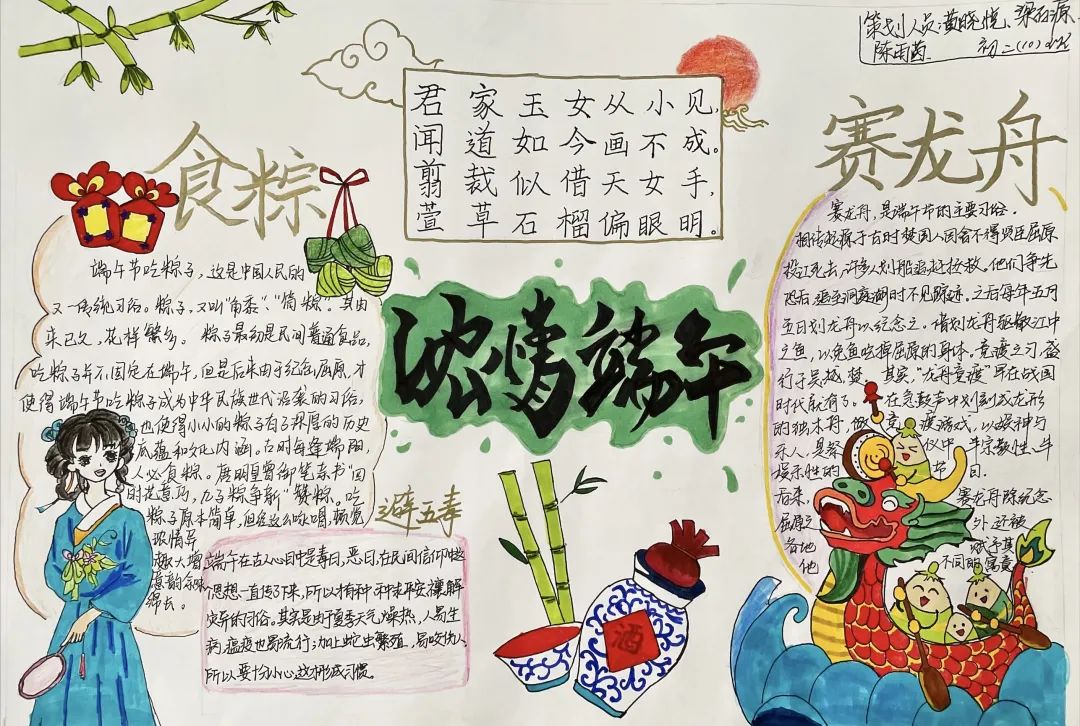 策划人员:黄晓悦、梁
陈雨菡 初二(10)
君家玉女从小见,
闻道如今画不成。
翦裁似借天女手,
萱草石榴偏眼明。
食粽
端午节吃粽子,这是中国人民的
又一传统习俗。粽子,又叫"角黍"、"筒粽"。其由
来已久,花样繁多。粽子最初是民间普通食品,
吃粽子并不固定在端午,但是后来由于纪念屈原,才
使得端午节吃粽子成为中华民族世代沿袭的习俗,
也使得小小的粽子有了深厚的历史
底蕴和文化内涵。古时每逢端阳,
人必食粽。唐明皇曾御笔亲书"四
时花竞巧,九子粽争新"赞粽。吃
粽子原本简单,但经这么咏唱,顿觉
浓情异
趣大增
意韵
绵长。
浓情端午
避五毒
端午在古人心目中是毒日,恶日,在民间信仰中这
个思想一直传了下来,所以有种种求平安、禳解
灾异的习俗。其实是由于夏季天气燥热,人易生
病,瘟疫也易流行;加上蛇虫繁殖,易咬伤人,
所以要十分小心,这才形成习惯。
酒
赛龙舟
赛龙舟,是端午节的主要习俗。
相传起源于古时楚国人因舍不得贤臣屈原
投江死去,许多人划船追赶拯救。他们争先
恐后,追至洞庭湖时不见踪迹。之后每年五月
五日划龙舟以纪念之。借划龙舟驱散江中
之鱼,以免鱼吃掉屈原的身体。竞渡之习,盛
行于吴、越、楚。其实,"龙舟竞渡"早在战国
时代就有了。在急鼓声中划刻成龙形
的独木舟,做竞渡游戏,以娱神与
乐人,是祭仪中半宗教性、半
娱乐性的节目。
后来,赛龙舟除纪念
屈原之外,还被
各地赋予其
他不同的寓意